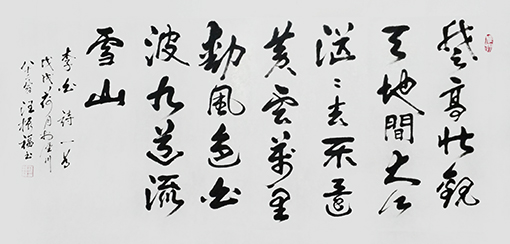 登高壮觀
天地間大江
茫々去不還
黄雲萬里
動風色白
波九道流
雪山
李白詩一首
戊戌 月 川
八 汪 福書